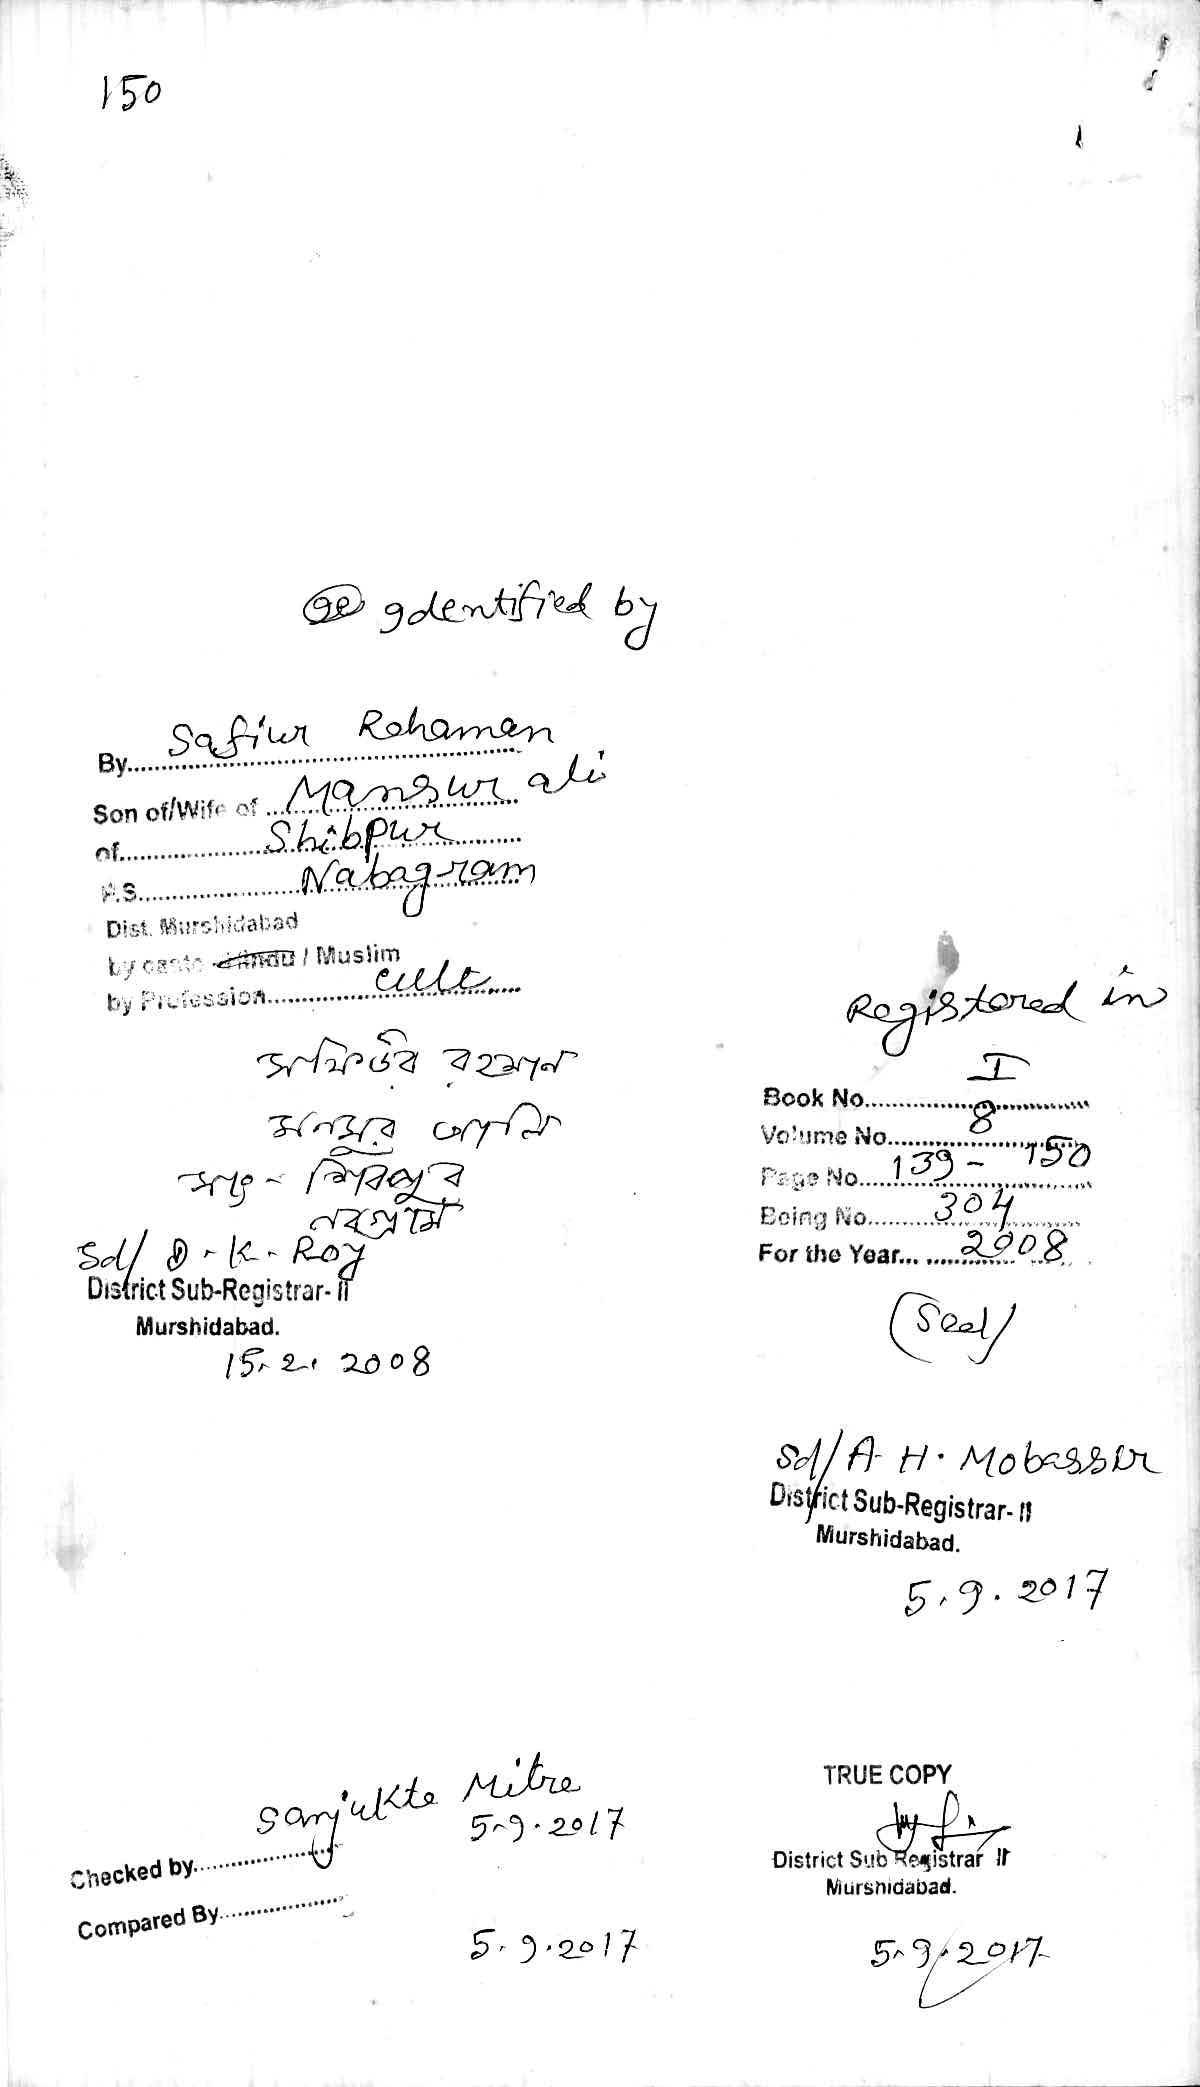 150
Identified by
By Safiur Rahaman
Son of/Wife of Mansur ali
of Shibpur
P.S. Nabagram
Dist. Murshidabad
by caste Hindu / Muslim
by Profession cult.
সাফিউর রহমান
মনসুর আলি
সাং - শিবপুর
নবগ্রাম
Sd/ D. K. Roy
District Sub-Registrar- II
Murshidabad.
15.2.2008
Registered in
Book No. I
Volume No. 8
Page No. 139 - 150
Being No. 304
For the Year... 2008
(Seal)
Sd/ A. H. Mobassir
District Sub-Registrar- II
Murshidabad.
5.9.2017
Sanjukta Mitra
5.9.2017
Checked by
Compared By
5.9.2017
TRUE COPY
District Sub Registrar II
Murshidabad.
5.9.2017